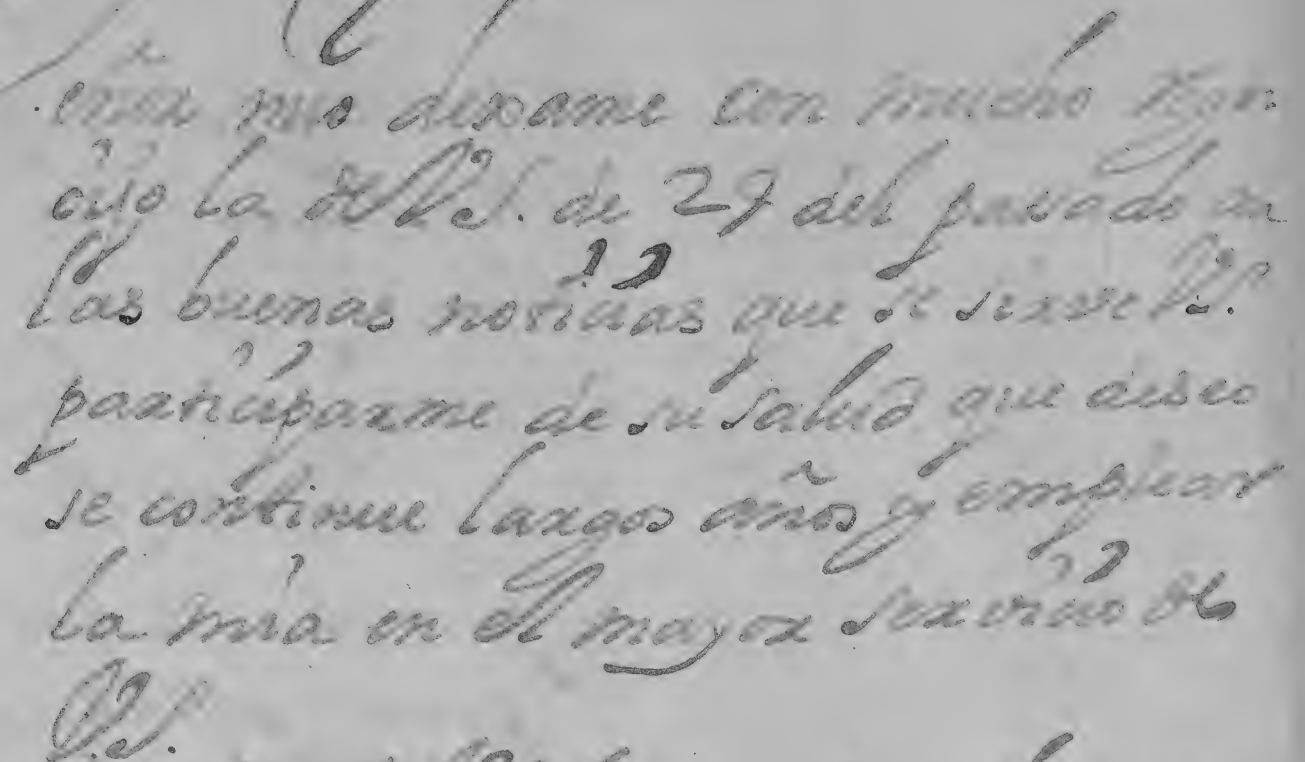 mio dexame con mucho
cijo la de V.S. de 27 del pasado en
las buenas noticias que se sirve V.S.
participarme de su salud que deseo
se continue largos años y emplear
la mia en el mayor servicio de
V.S.